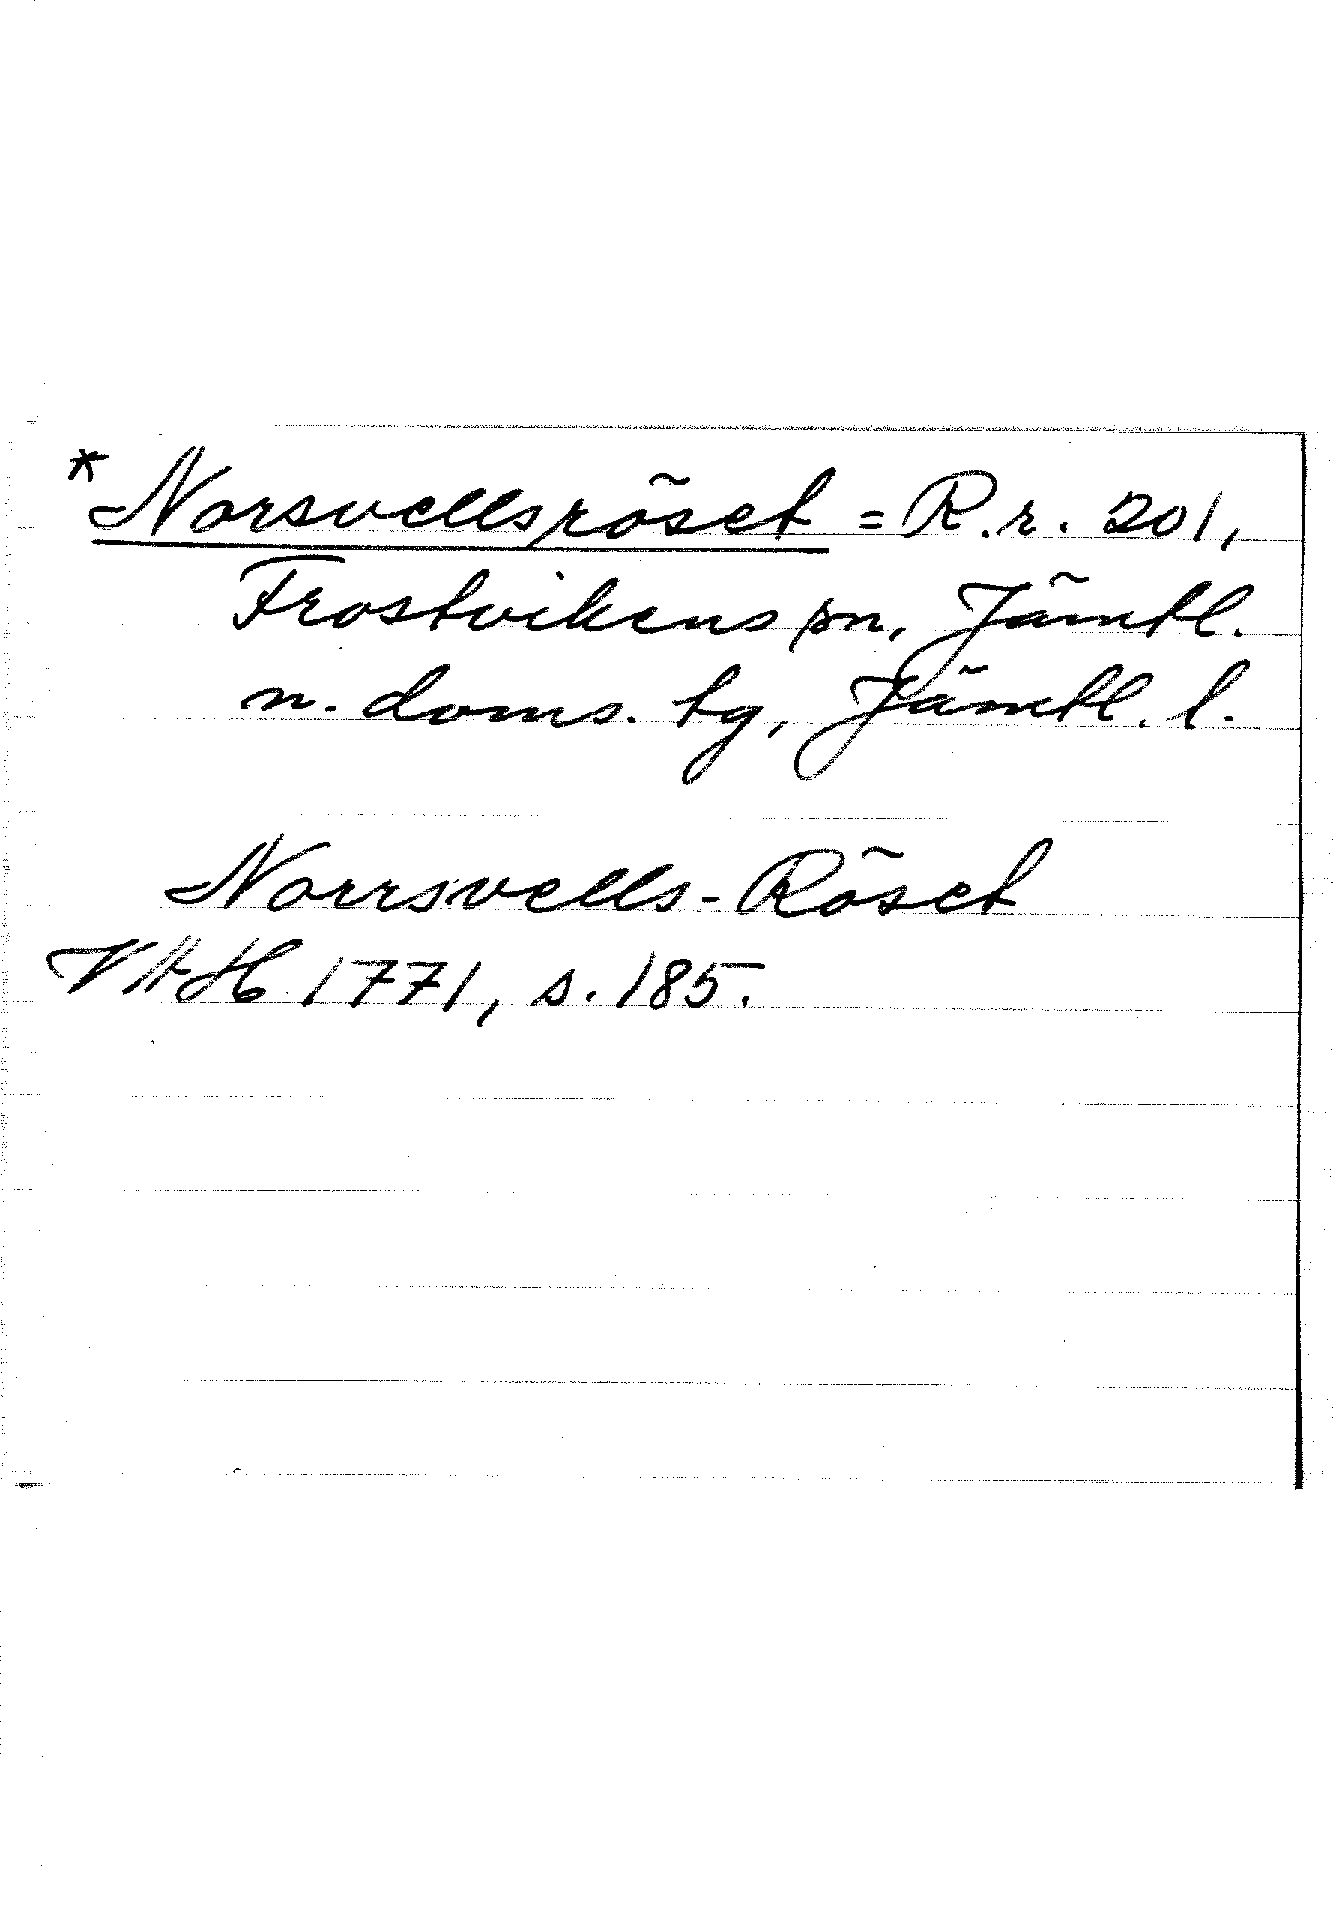 * Norsvellsröset = R.r. 201,
Frostvikens sn, Jämtl.
n. doms. tg, Jämtl. l.
Norrsvells-Röset
VAH 1771, s. 185.